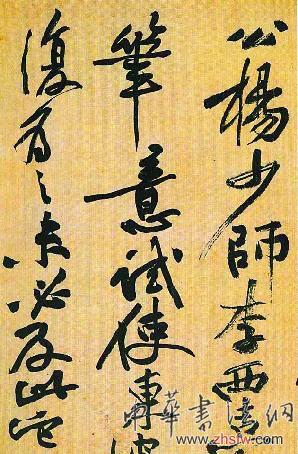 公楊少師李西臺
筆意試使東坡
復為之未必及此它
中華書法網
www.zhsfw.com